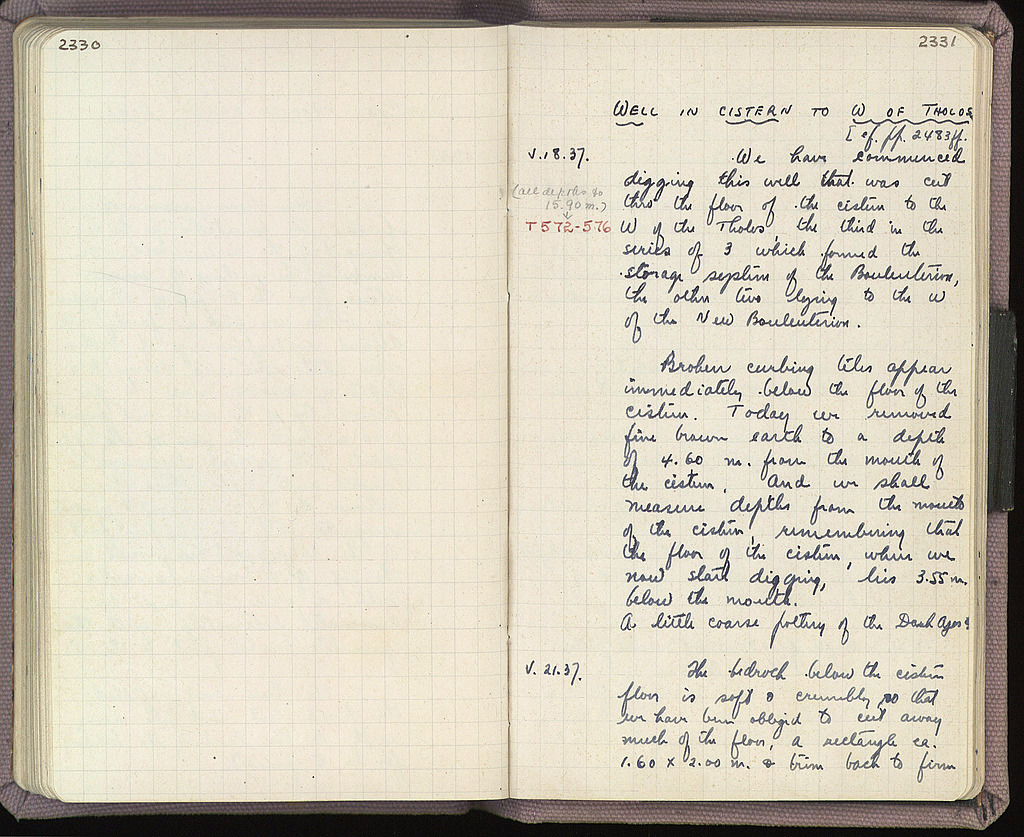 2330
2331
WELL IN CISTERN TO W OF THOLOS
[cf. pp. 2483ff.
V.18.37. We have commenced
digging this well that was cut
(all depths to
15.90 m.)
thro the floor of the cistern to the
T 572-576 W of the Tholos, the third in the
series of 3 which formed the
storage system of the Bouleuterion,
the other two lying to the W
of the New Bouleuterion.
Broken curbing tiles appear
immediately below the floor of the
cistern. Today we removed
fine brown earth to a depth
of 4.60 m. from the mouth of
the cistern, and we shall
measure depths from the mouth
of the cistern, remembering that
the floor of the cistern, where we
now start digging, lies 3.55 m.
below the mouth.
A little coarse pottery of the Dark Ages
V.21.37. The bedrock below the cistern
floor is soft & crumbly so that
we have been obliged to cut away
much of the floor, a rectangle ca.
1.60 x 2.00 m. & trim back to firm